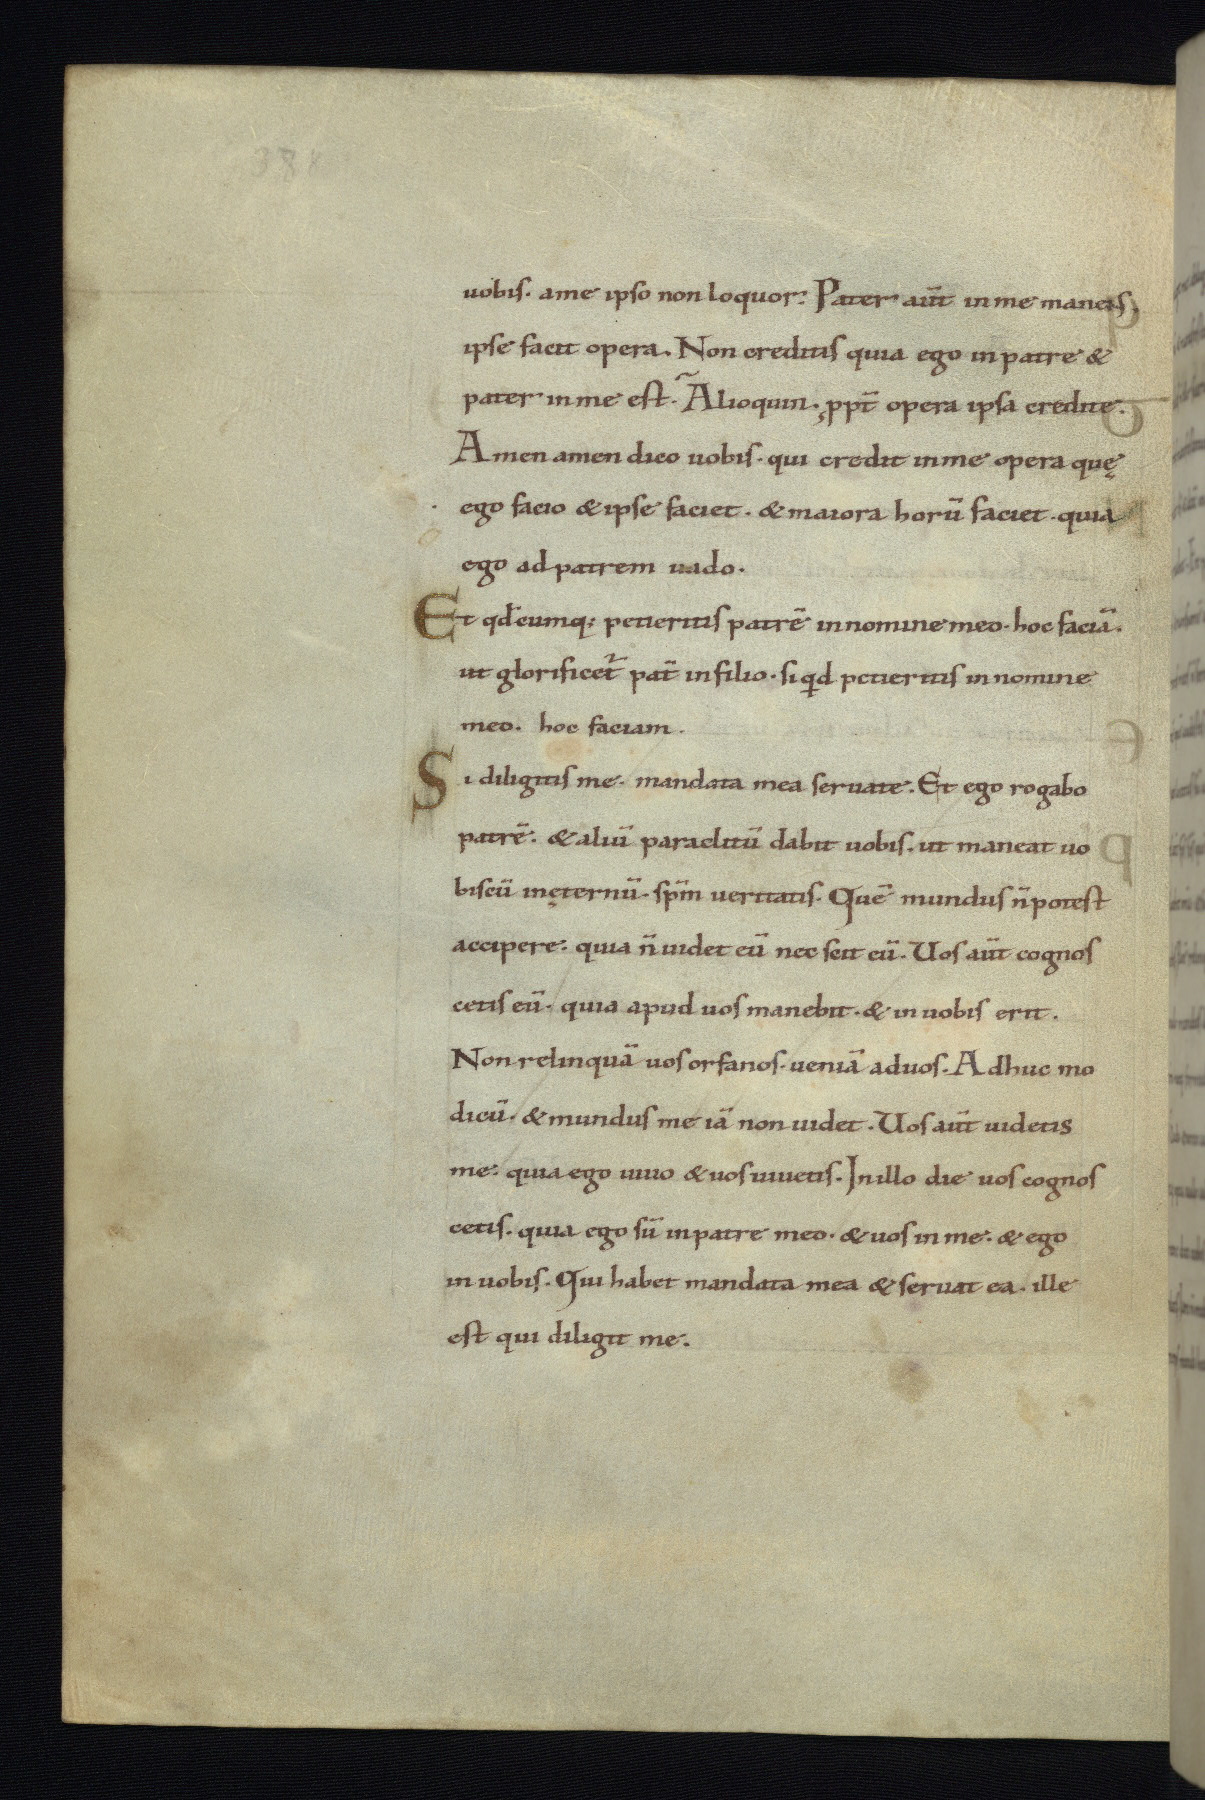 uobis. ame ipso non loquor: Pater aut̄ inme manens.
ipse facit opera. Non creditis quia ego inpatre &
pater inme est. Alioquin. ꝓppt̄ opera ipsa credite.
Amen amen dico uobis. qui credit inme opera quę
ego facio & ipse faciet. & maiora horū faciet. quia
ego adpatrem uado.
Et qđcumq; petieritis patrē innomine meo. hoc faciā.
ut glorificet᷑ pat̄ infilio. siqid petieritis innomine
meo. hoc faciam.
Si diligitis me. mandata mea seruate. Et ego rogabo
patrē. & aliū paraclitū dabit uobis. ut maneat uo
biscū inęternū. spm̄ ueritatis. Quē mundus n̄ potest
accipere. quia n̄ uidet eū nec scit eū. Uos aut̄ cognos
cetis eū. quia apud uos manebit. & in uobis erit.
Non relinquā uos orfanos. ueniā aduos. Adhuc mo
dicū. & mundus me iā non uidet. Uos aut̄ uidetis
me. quia ego uiuo & uos uiuetis. Inillo die uos cognos
cetis. quia ego sū inpatre meo. & uos in me. & ego
in uobis. Qui habet mandata mea & seruat ea. ille
est qui diligit me.